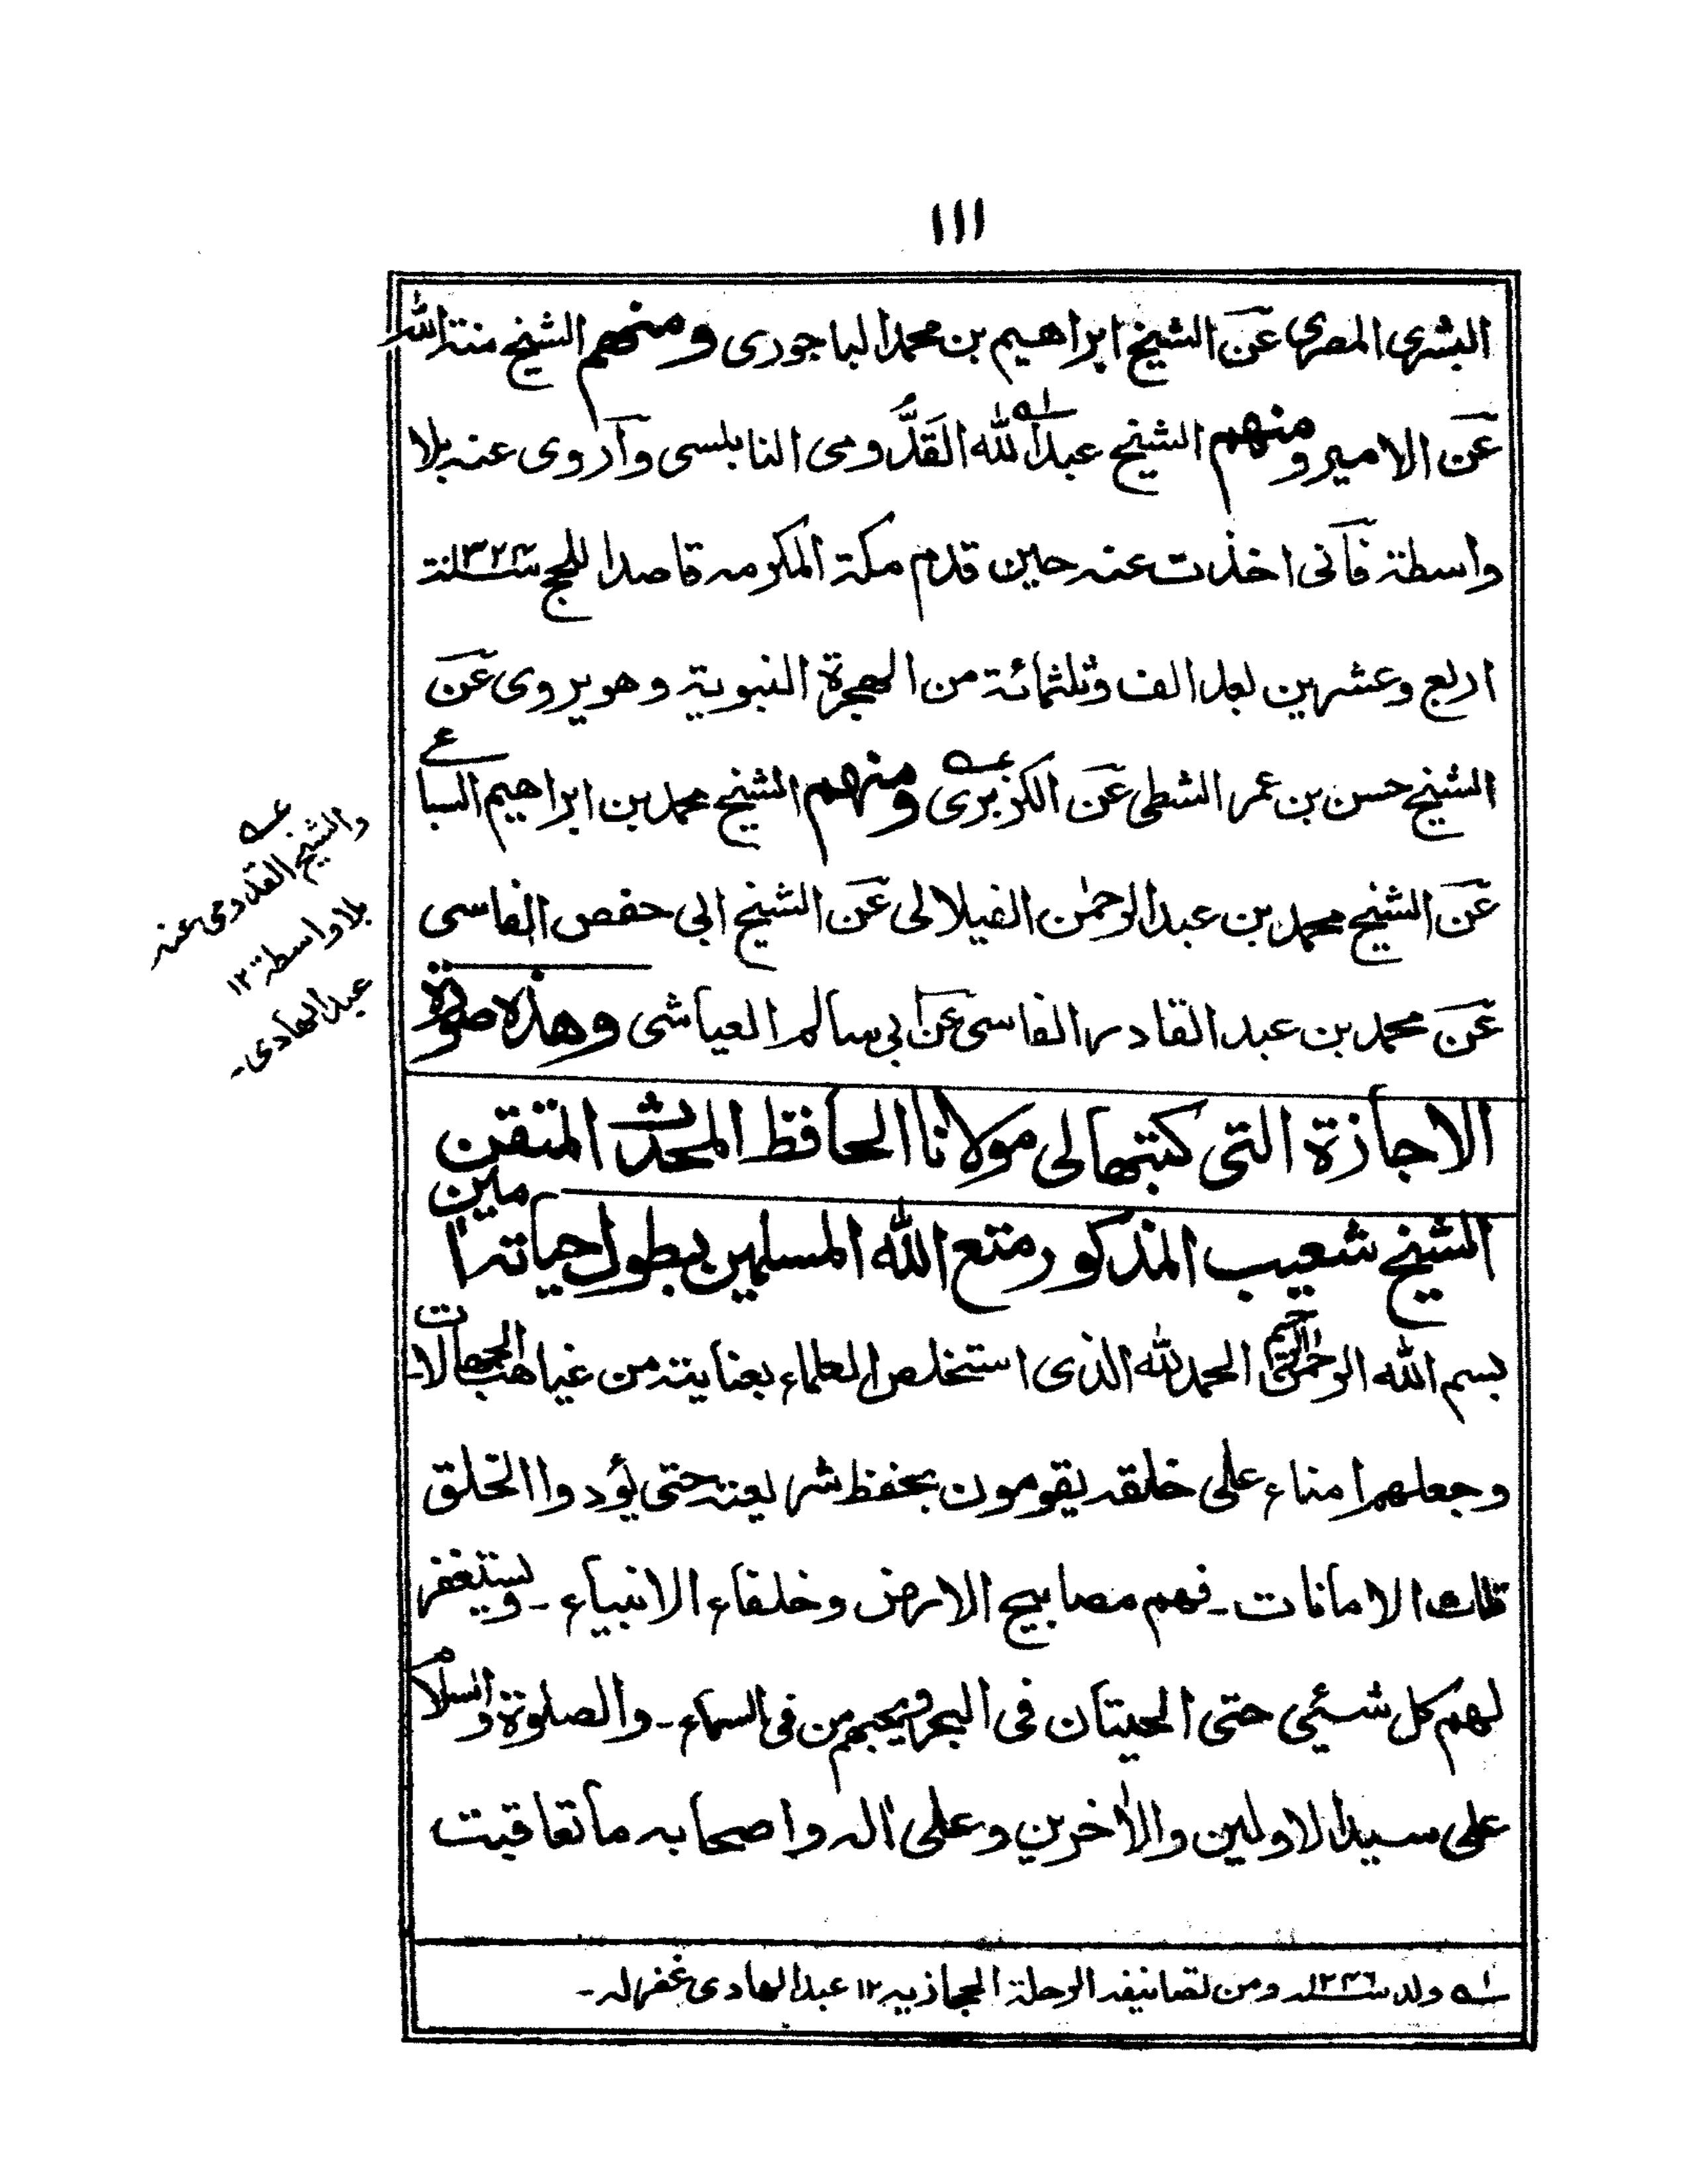 ١١١
البشرى المصرى عَن الشيخ ابراهيم بن محمد الباجورى ومنهم الشيخ منة الله
عَن الامير ومنهم الشيخ عبد الله القَدُّومى النابلسى وآروى عنه بلا
واسطة فآنى اخذت عنه حين قدم مكة المكرمه قاصدا للحج سنة ١٣٢٤
اربع وعشرين بعد الف وثلثمائة من الهجرة النبوية وهو يروى عَن
الشيخ حسن بن عمر الشطى عَن الكزبرى ومنهم الشيخ محمد بن ابراهيم السباعى
عَن الشيخ محمد بن عبد الرحمٰن الفيلالى عَن الشيخ ابى حفص الفاسى
عَن محمد بن عبد القادر الفاسى عَن ابى سالم العياشى وهذه صورة
الاجازة التى كتبها لى مولانا الحافظ المحدث المتقن
الشيخ شعيب المذكور متع الله المسلمين بطول حياته اٰمين
بسم الله الرحمٰن الرحيم الحمد لله الذى استخلص العلماء بعنايته من غياهب الجهالات
وجعلهم امناء على خلقه يقومون بحفظ شريعته حتى يؤدوا الخلق
تلك الامانات ـ فهم مصابيح الارض وخلفاء الانبياء ـ ويستغفر
لهم كل شئي حتى الحيتان فى البحر ويحبهم من فى السماء ـ والصلوة والسلام
على سيد الاولين والاٰخرين وعلى اٰله واصحابه ما تعاقبت
عـه
والشيخ القدومى عنه
بلا واسطة ١٢
عبد الهادى ـ
لـه ولد سنة ١٢٤٦ه ومن تصانيفه الرحلة الحجازيه ١٢ عبد الهادى غفر له ـ